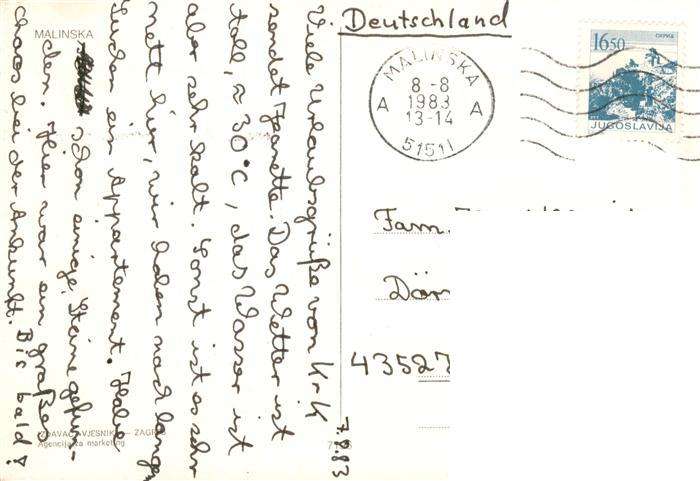 MALINSKA
Viele Urlaubsgrüße von Krk
sendet Jeanette. Das Wetter ist
toll, ≈ 30°C, das Wasser ist
aber sehr kalt. Sonst ist es sehr
nett hier, wir haben nach lange
Suchen ein Appartement. Habe
schon einige Steine gefun-
den. Hier war ein großes
Chaos bei der Ankunft. Bis bald!
7.8.83
Deutschland
MALINSKA
8 -8
1983
13-14
A A
51511
16,50
JUGOSLAVIJA
Fam.
Dör
43527
VJESNIK — ZAGREB
Agencija za marketing